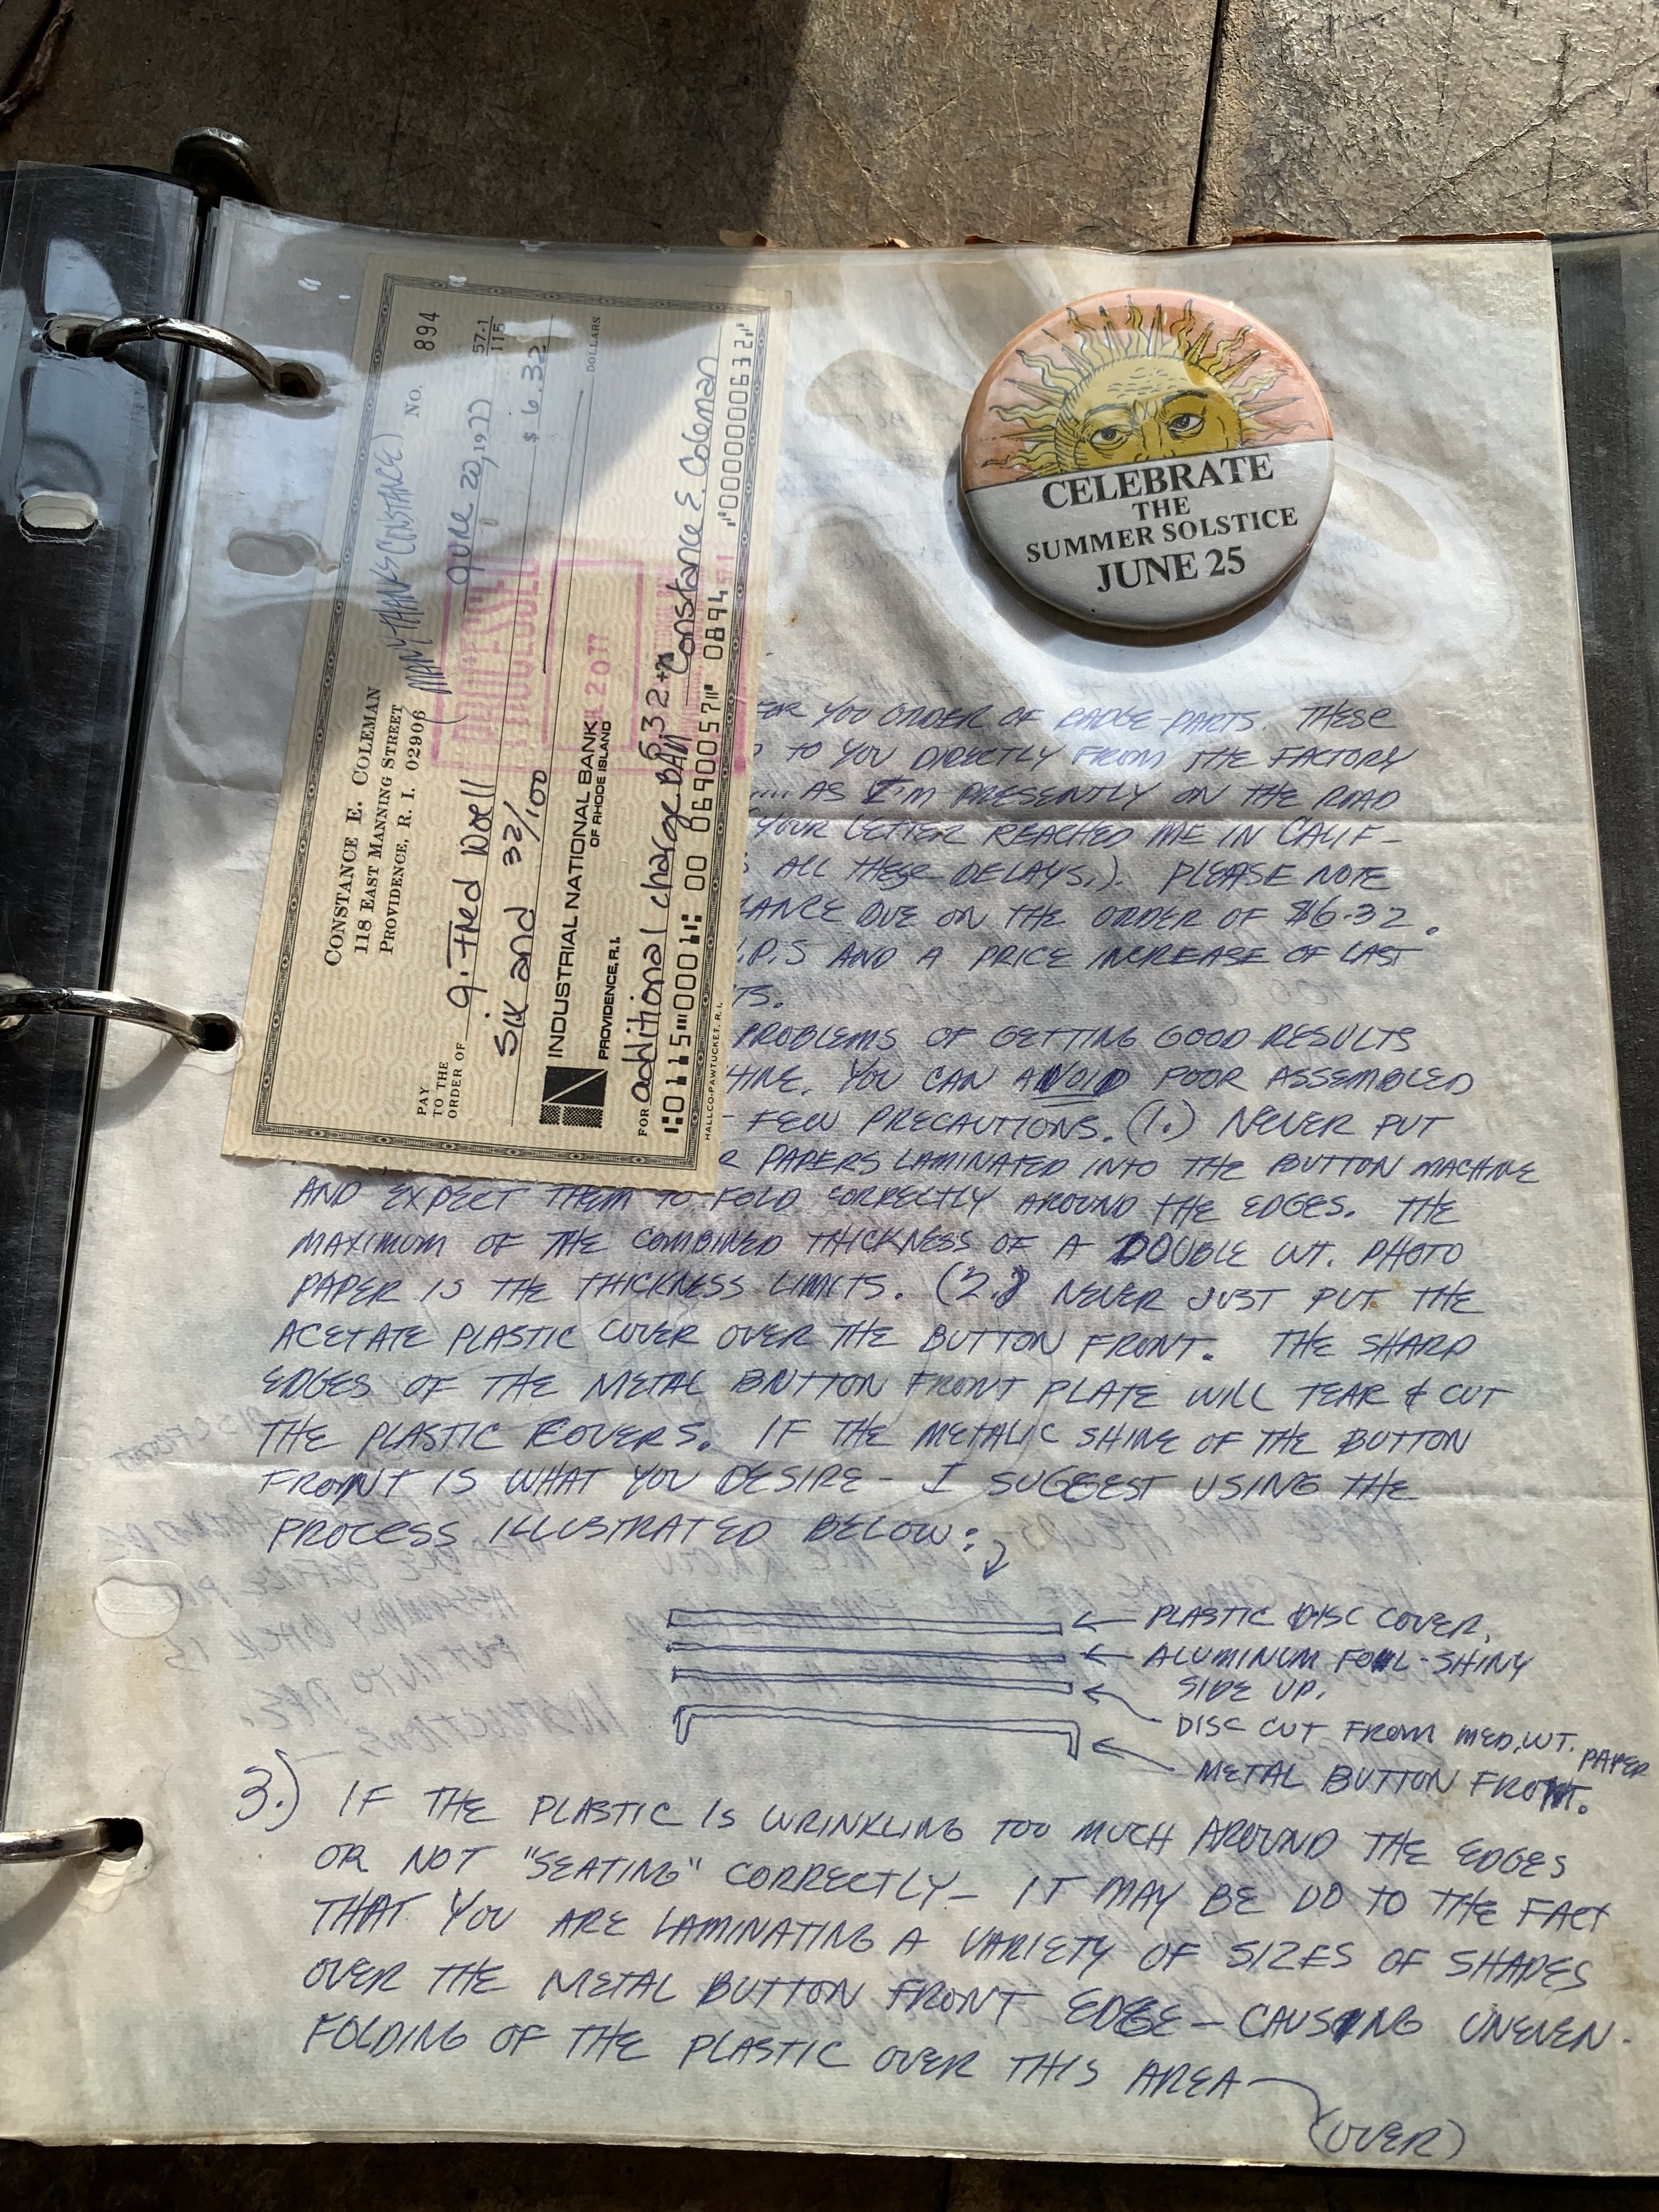 CONSTANCE E. COLEMAN
118 EAST MANNING STREET
PROVIDENCE, R. I. 02906
(MANY THANKS CONSTANCE)
NO. 894
June 20, 1977
57-1
115
PAY
TO THE
ORDER OF
J. Fred Woell
$ 6.32
Six and 32/100
DOLLARS
INDUSTRIAL NATIONAL BANK
OF RHODE ISLAND
PROVIDENCE, R.I.
PROCESSED
6.32
FOR additional charge
Constance E. Coleman
0894
0000000632
HALLCO-PAWTUCKET, R. I.
CELEBRATE
THE
SUMMER SOLSTICE
JUNE 25
FOR YOU ORDER OF BADGE PARTS. THESE
TO YOU DIRECTLY FROM THE FACTORY
.... AS I'M PRESENTLY ON THE ROAD
YOUR LETTER REACHED ME IN CALIF-
ALL THESE DELAYS.). PLEASE NOTE
DUE ON THE ORDER OF $6.32.
AND A PRICE INCREASE OF LAST
PROBLEMS OF GETTING GOOD RESULTS
YOU CAN AVOID POOR ASSEMBLED
FEW PRECAUTIONS. (1.) NEVER PUT
PAPERS LAMINATED INTO THE BUTTON MACHINE
AND EXPECT THEM TO FOLD CORRECTLY AROUND THE EDGES. THE
MAXIMUM OF THE COMBINED THICKNESS OF A DOUBLE WT. PHOTO
PAPER IS THE THICKNESS LIMITS. (2.) NEVER JUST PUT THE
ACETATE PLASTIC COVER OVER THE BUTTON FRONT. THE SHARP
EDGES OF THE METAL BUTTON FRONT PLATE WILL TEAR & CUT
THE PLASTIC COVERS. IF THE METALIC SHINE OF THE BUTTON
FRONT IS WHAT YOU DESIRE - I SUGGEST USING THE
PROCESS ILLUSTRATED BELOW:
PLASTIC DISC COVER.
ALUMINUM FOIL - SHINY
SIDE UP.
DISC CUT FROM MED. WT. PAPER
METAL BUTTON FRONT.
3.) IF THE PLASTIC IS WRINKLING TOO MUCH AROUND THE EDGES
OR NOT "SEATING" CORRECTLY - IT MAY BE DO TO THE FACT
THAT YOU ARE LAMINATING A VARIETY OF SIZES OF SHAPES
OVER THE METAL BUTTON FRONT EDGE - CAUSING UNEVEN
FOLDING OF THE PLASTIC OVER THIS AREA
(OVER)